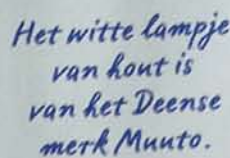 Het witte lampje
van hout is
van het Deense
merk Muuto.